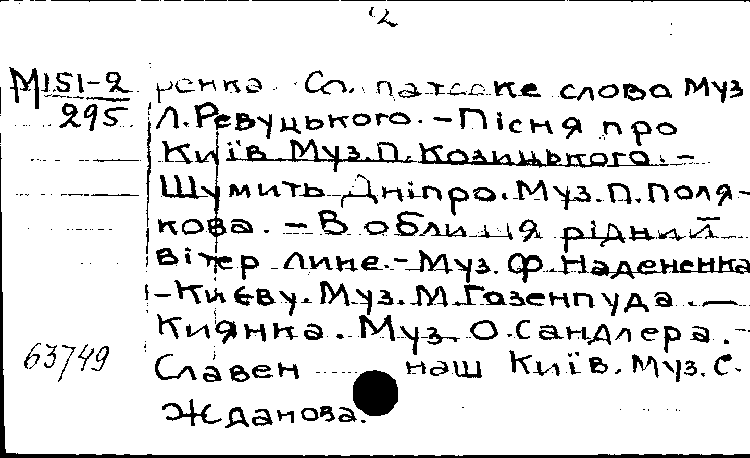 2
М151-2 ренка. Сл. патсоке слова Муз
295 Л.Ревуцького. – Пісня про
Київ Муз.П.Козицького. –
Шумить Дніпро. Муз.П.Поля-
кова. – В обличчя рідний
вітер лине. – Муз. Ф.Надененка
– Києву. Муз. М.Гозенпуда. —
Киянка. Муз. О.Сандлера. –
63749 Славен наш Київ. Муз. С.
Жданова.